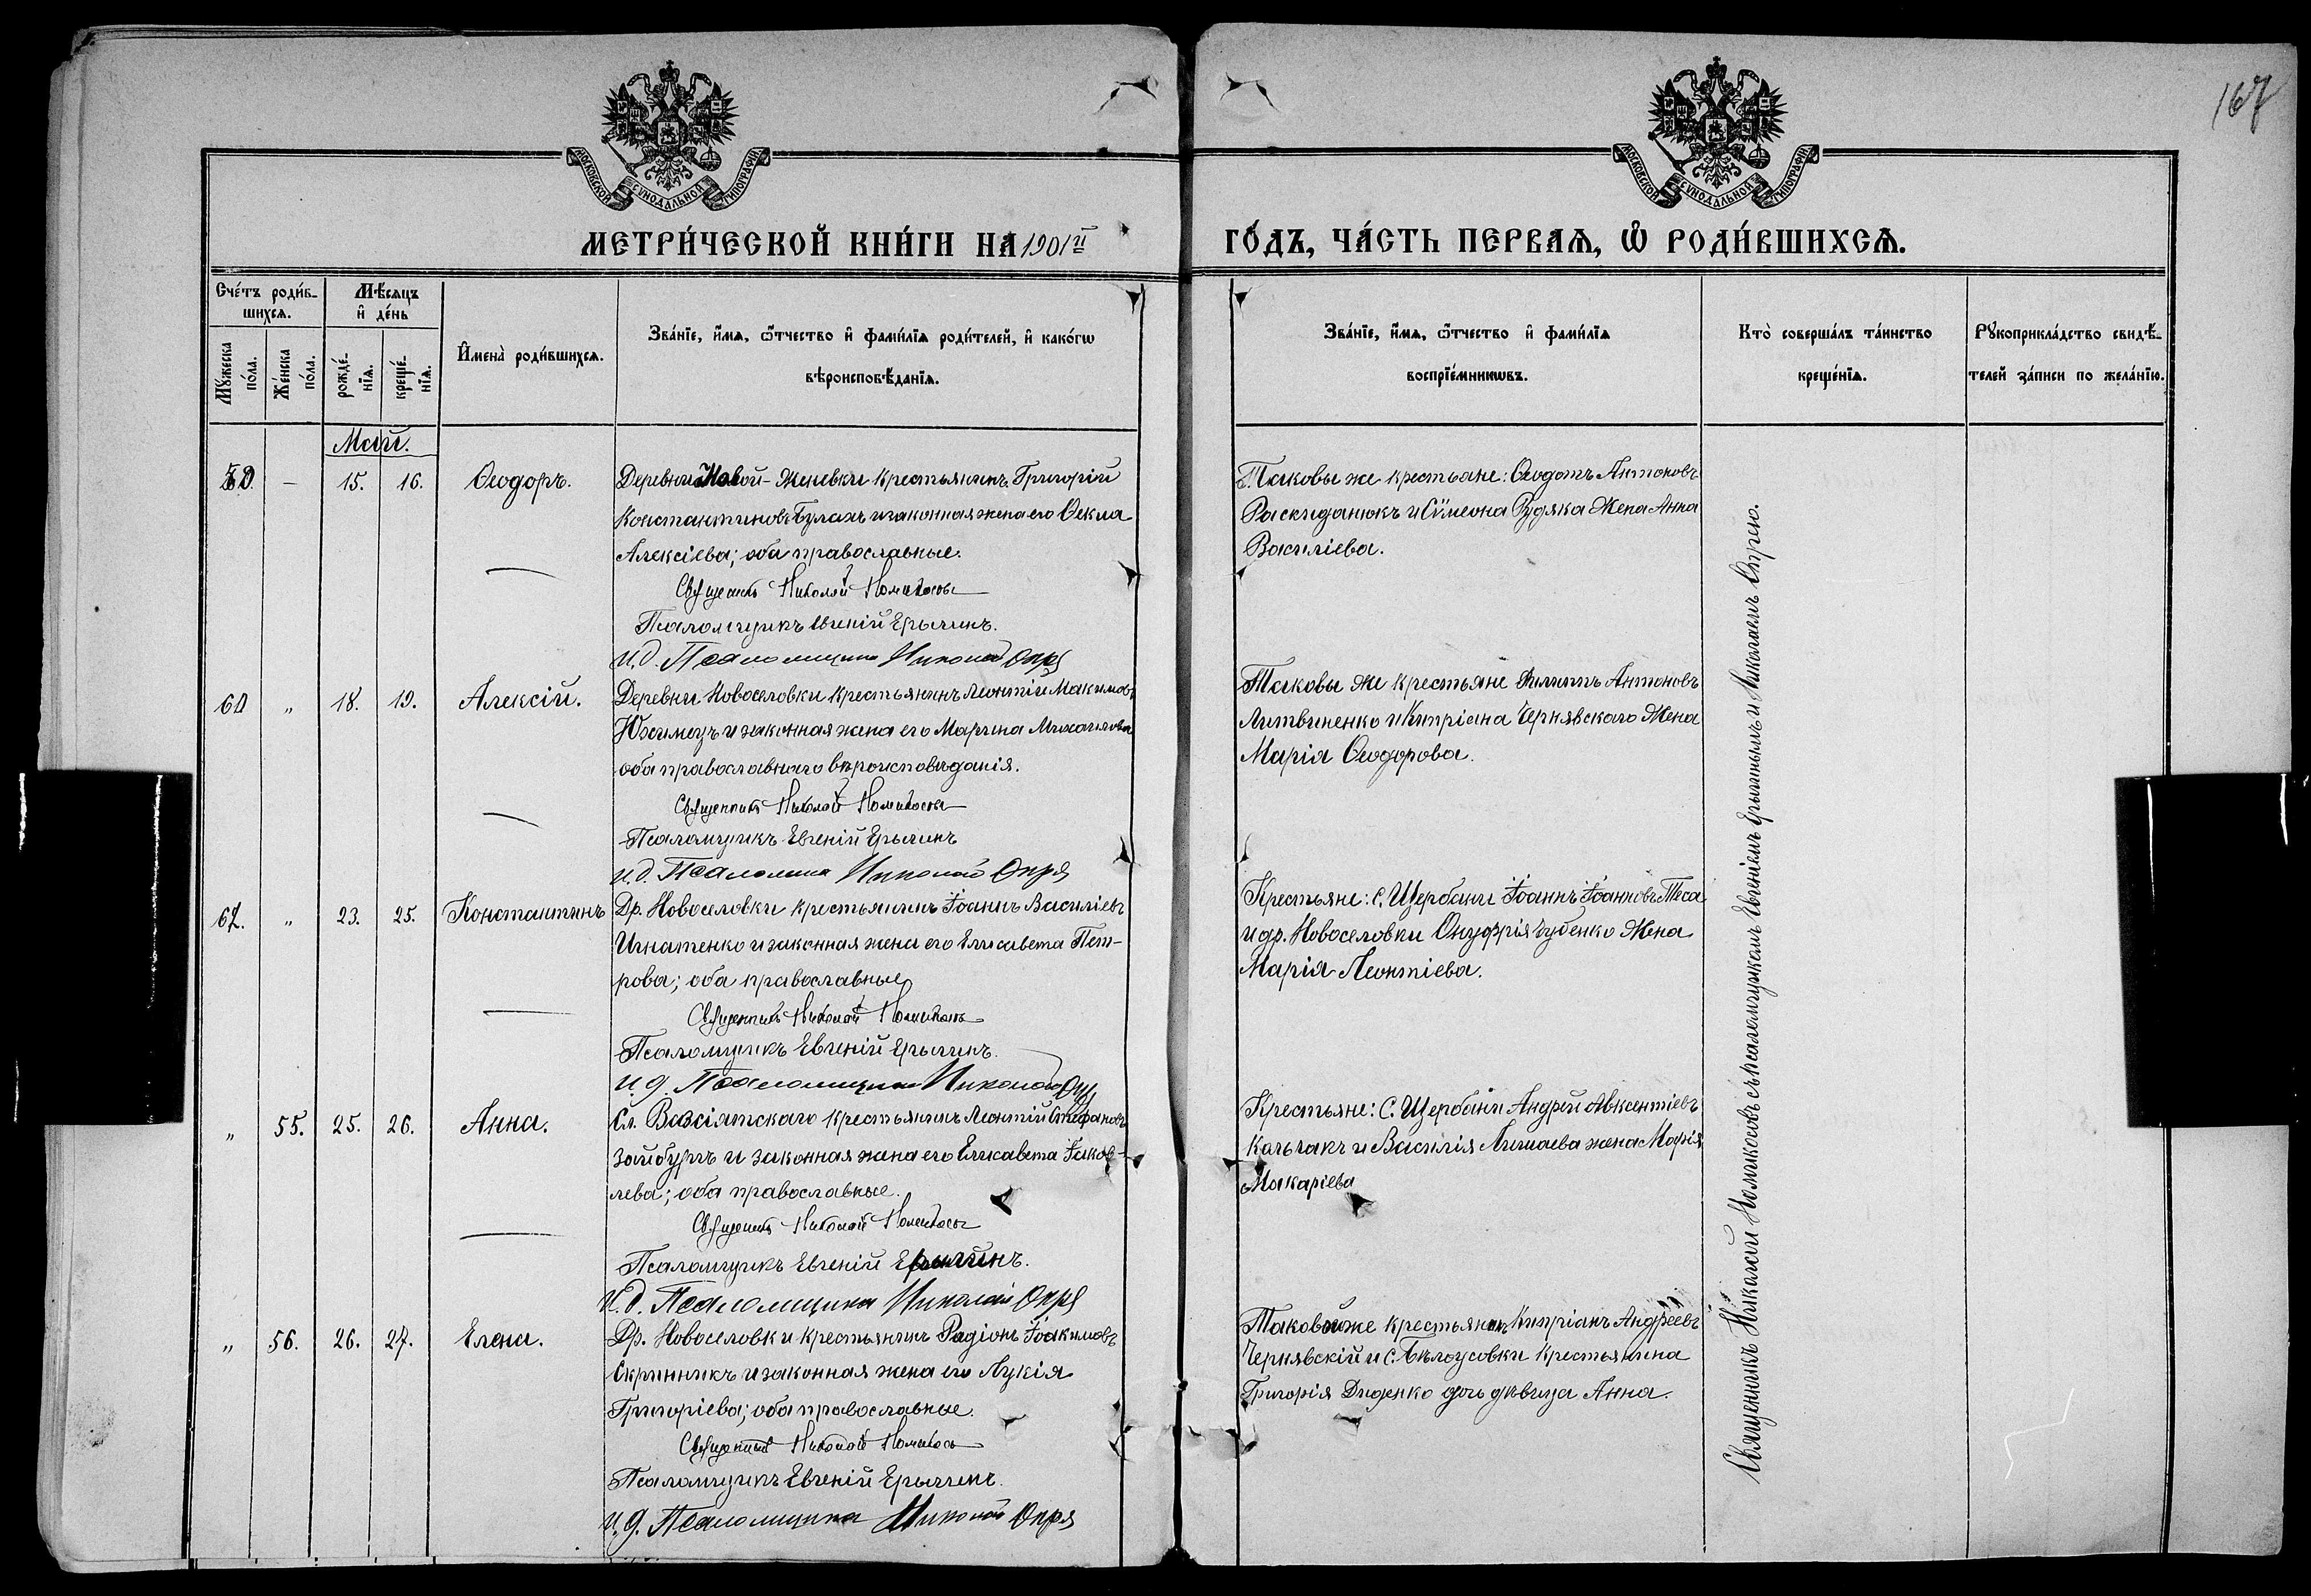 167
МОСКОВСКОЙ СѴНОДАЛЬНОЙ ТИПОГРАФІИ
МОСКОВСКОЙ СѴНОДАЛЬНОЙ ТИПОГРАФІИ
МЕТРИ́ЧЕСКОЙ КНИ́ГИ НА 1901й ГО́ДЪ, ЧА́СТЬ ПЕРВАѦ, Ѡ҆ РОДИ́ВШИХСѦ.
Сче́тъ роди́в-
шихсѧ.
Мꙋжеска по́ла.
Же́нска по́ла.
Мѣ́сѧцъ
и҆ де́нь
рожде́-
нїѧ.
креще́-
нїѧ.
И҆мена̀ роди́вшихсѧ.
Зва́нїе, и҆́мѧ, ѻ҆́тчество и҆ фами́лїѧ роди́телей, и҆ како́гѡ
вѣроисповѣ́данїѧ.
Зва́нїе, и҆́мѧ, ѻ҆́тчество и҆ фами́лїѧ
воспрїе́мникѡвъ.
Кто̀ соверша́лъ та́инство
креще́нїѧ.
Рꙋкоприкла́дство свидѣ́-
телей за́писи по жела́нїю.
Май.
— 15. 16. Ѳеодоръ.
Деревни Новой-Женевки крестьянинъ Григорій
Константиновъ Булахъ и законная жена его Ѳекла
Алексіева; оба православные.
Священникъ Николай Номикосовъ
Псаломщикъ Евгеній Ерыгинъ.
И.д. Псаломщика Николай Опря
Таковы же крестьяне: Ѳеодотъ Антоновъ
Раскиданюкъ и Сѵмеона Рудяка жена Анна
Василіева.
60 „ 18. 19. Алексій.
Деревни Новоселовки крестьянинъ Леонтій Максимовъ
Юхимецъ и законная жена его Марина Михайлова
оба православнаго вѣроисповѣданія.
Священникъ Николай Номикосовъ
Псаломщикъ Евгеній Ерыгинъ
И.д. Псаломщика Николай Опря
Таковы же крестьяне Филиппъ Антоновъ
Литвиненко и Кипріана Чернявскаго жена
Марія Ѳеодорова.
62. „ 23. 25. Константинъ
Др. Новоселовки крестьянинъ Іоаннъ Василіевъ
Игнатенко и законная жена его Елисавета Пет-
рова; оба православные
Священникъ Николай Номикосовъ
Псаломщикъ Евгеній Ерыгинъ.
И.д. Псаломщика Николай Опря
Крестьяне: с. Щербани Іоаннъ Іоанновъ Теса
и др. Новоселовки Онуфрія Чубенко жена
Марія Леонтіева.
„ 55. 25. 26. Анна.
Сл. Васіятскаго крестьянинъ Леонтій Стефановъ
Зайбутъ и законная жена его Елисавета Іаков-
лева; оба православные.
Священникъ Николай Номикосовъ
Псаломщикъ Евгеній Ерыгинъ.
И.д. Псаломщика Николай Опря
Крестьяне: с. Щербани Андрей Авксентіевъ
Кальчакъ и Василія Лишаева жена Марія
Макаріева
„ 56. 26. 27. Елена.
Др. Новоселовки крестьянинъ Радіонъ Іоакимовъ
Скринникъ и законная жена его Лукія
Григоріева; оба православные.
Священникъ Николай Номикосовъ
Псаломщикъ Евгеній Ерыгинъ.
И.д. Псаломщика Николай Опря
Таковойже крестьянинъ Кипріанъ Андреевъ
Чернявскій и с. Бѣлоусовки крестьянина
Григорія Диденко дочь дѣвица Анна.
Священникъ Николай Номикосовъ съ псаломщикомъ Евгеніемъ Ерыгинымъ и Николаемъ Опрею.